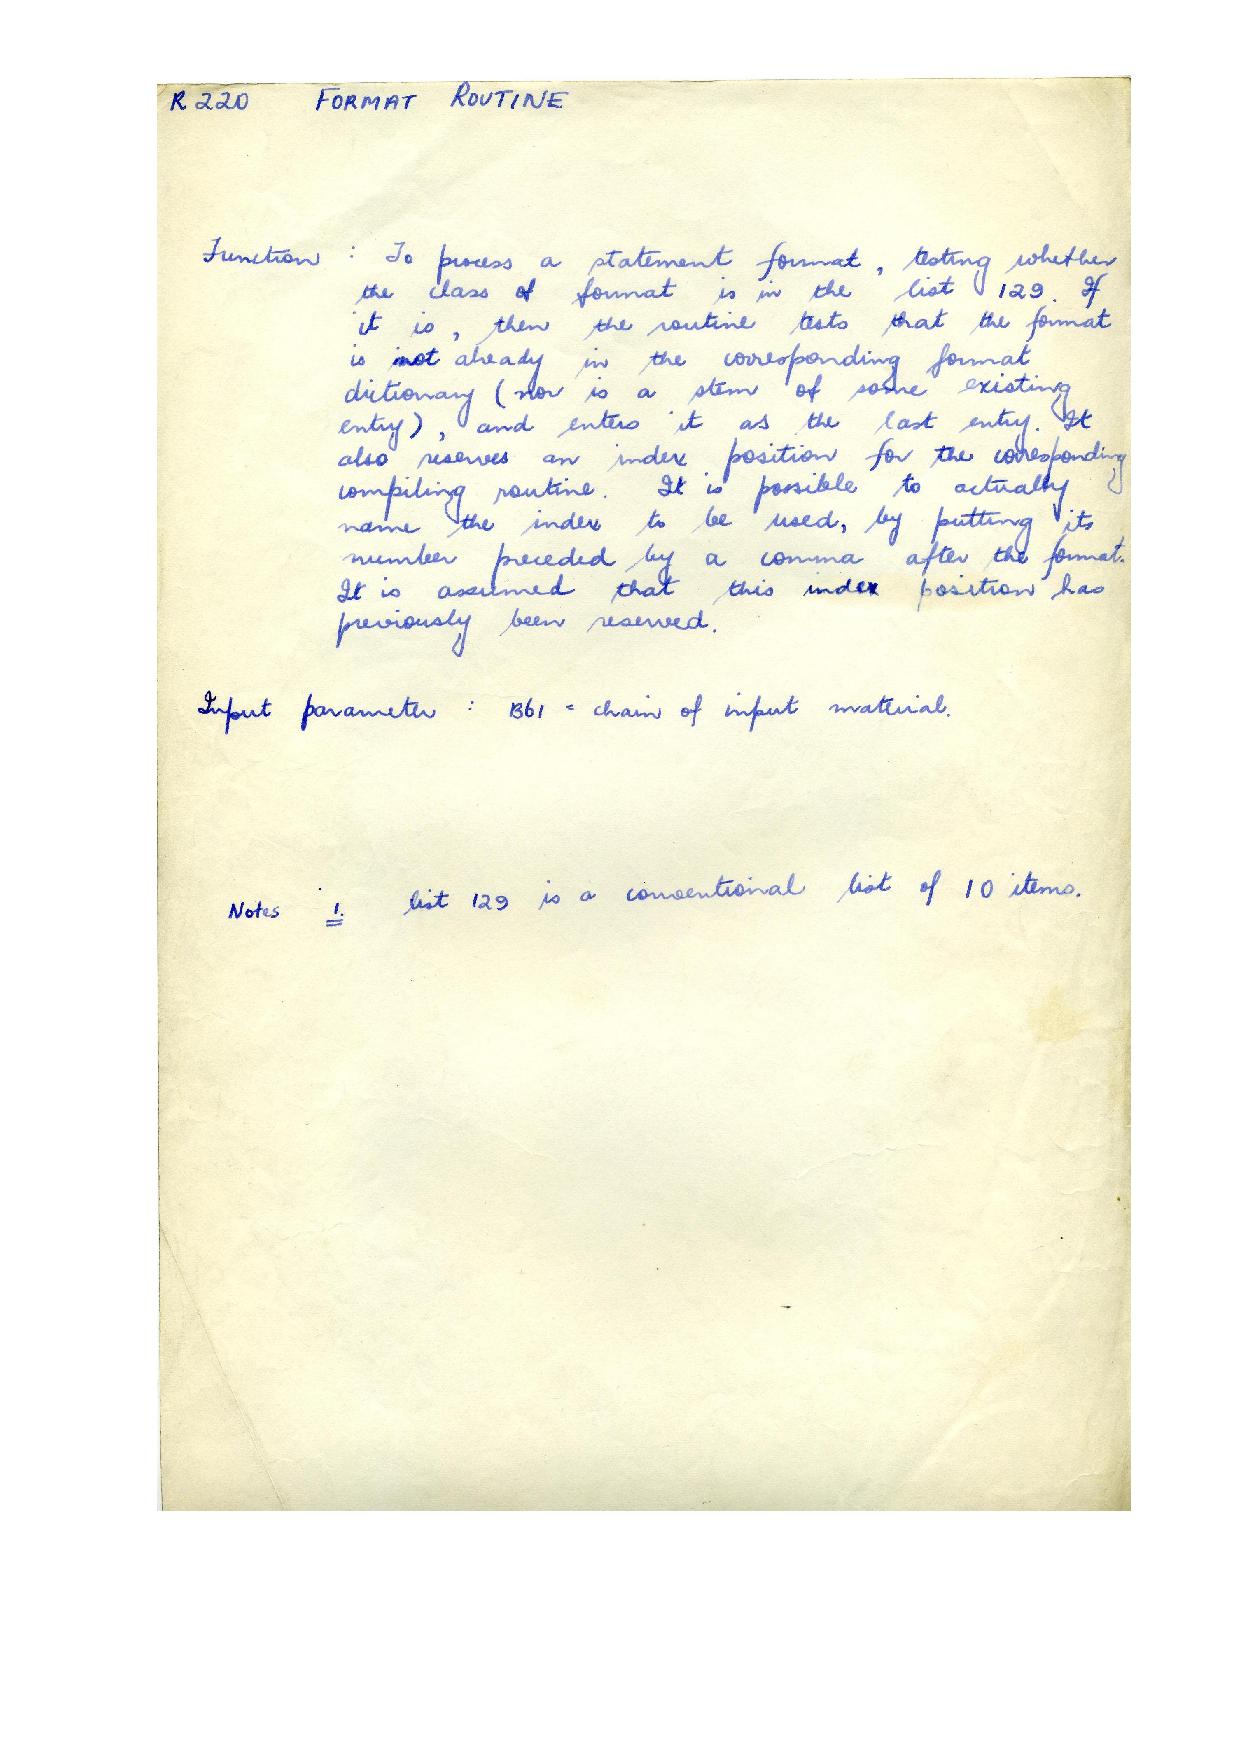 R 220 FORMAT ROUTINE
Function : To process a statement format, testing whether
the class of format is in the list 129. If
it is, then the routine tests that the format
is not already in the corresponding format
dictionary (nor is a stem of some existing
entry), and enters it as the last entry. It
also reserves an index position for the corresponding
compiling routine. It is possible to actually
name the index to be used, by putting its
number preceded by a comma after the format.
It is assumed that this index position has
previously been reserved.
Input parameter : B61 = chain of input material.
Notes 1. list 129 is a conventional list of 10 items.